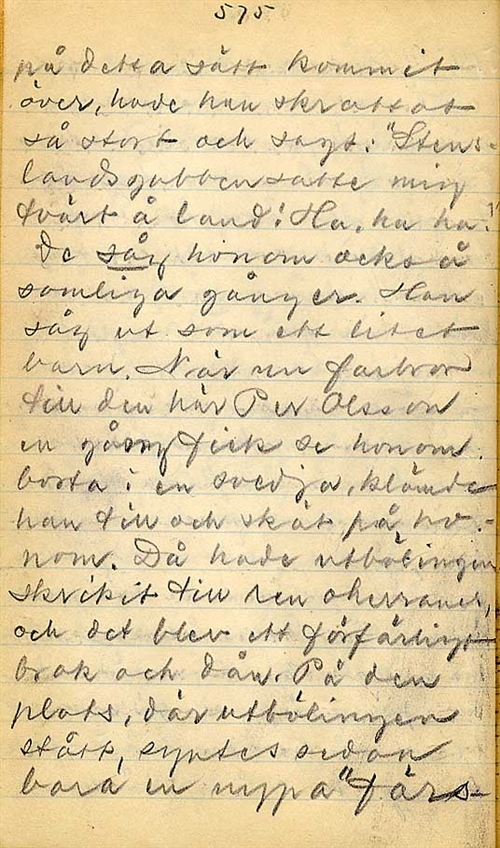 575
på detta sätt kommit
över, hade han skrattat
så stort och sagt: "Stens-
landsgubben satte mig
tvärt å land! Ha, ha ha!"
De såg honom också
somliga gånger. Han
såg ut som ett litet
barn. När en farbror
till den här Per Olsson
en gång fick se honom
borta i en svedja, klämde
han till och sköt på ho-
nom. Då hade utbölingen
skrikit till den okerraner,
och det blev ett förfärligt
brak och dån. På den
plats, där utbölingen
stått, syntes sedan
bara en nypa "färs-